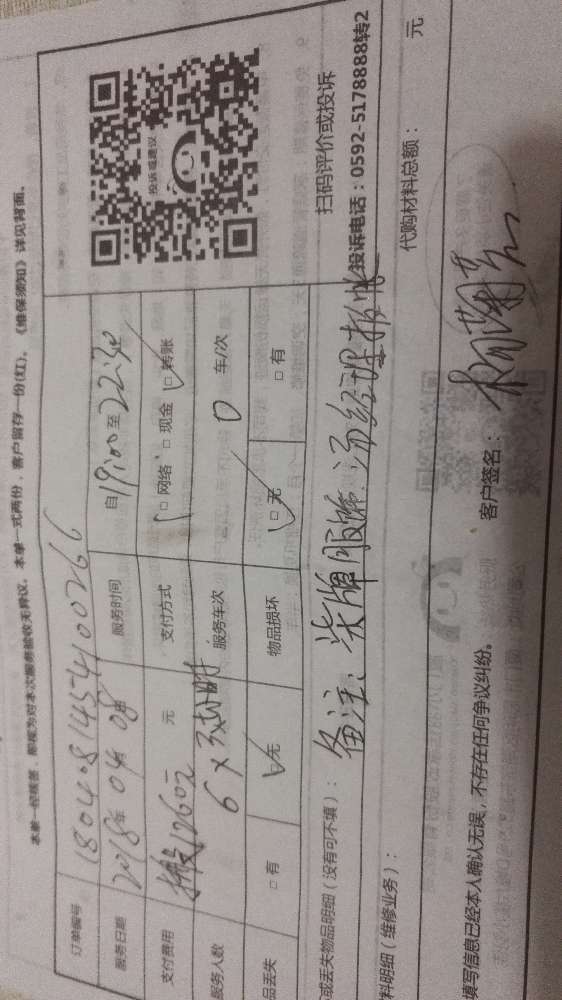 本单一经填签，即视为对本次服务验收无异议。本单一式两份，客户留存一份(红)。《维保须知》详见背面。
订单编号 180408145400266
服务日期 2018年 04月 08日 服务时间 自 19:00 至 22:30
支付费用 搬投1260元 元 支付方式 □ 网络 □ 现金 □ 转账
服务人数 6×3.5小时 服务车次 0 车/次
品丢失 □ 有 □ 无 物品损坏 □ 无 □ 有
投诉或建议
扫码评价或投诉
投诉电话：0592-5178888转2
或丢失物品明细（没有可不填）： 备注：柒牌服饰 汤经理报账
料明细（维修业务）： 代购材料总额： 元
填写信息已经本人确认无误，不存在任何争议纠纷。 客户签名：